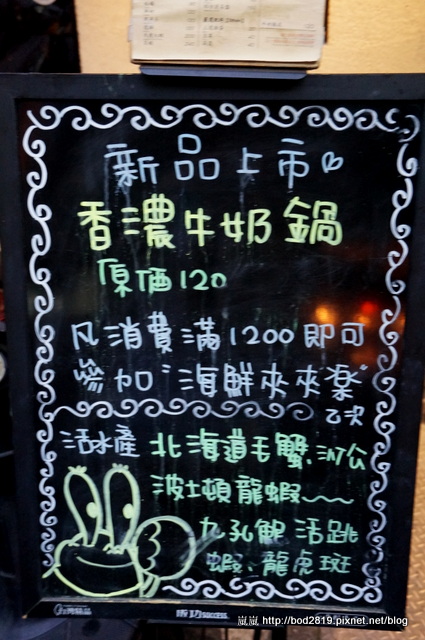 新品上市
香濃牛奶鍋
原価120
凡消費滿1200即可
參加"海鮮夾夾樂"
乙次
活水產 北海道毛蟹、沙公
波士頓龍蝦~~
九孔鮑 活跳
蝦、龍虎斑
成功
嵐嵐 http://bod2819.pixnet.net/blog